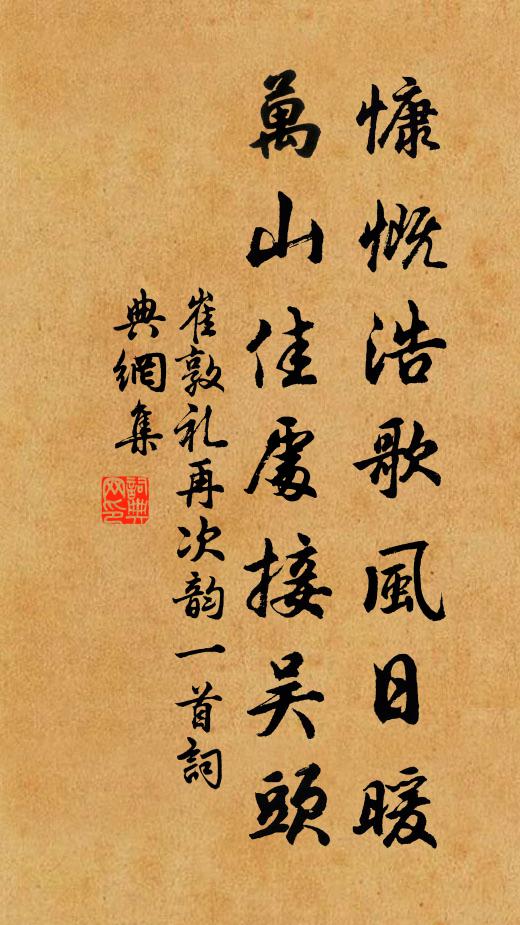 慷慨浩歌風日暖
萬山佳處接吴頭
崔敦礼再次韵一首詞
典網集
詞典
网印